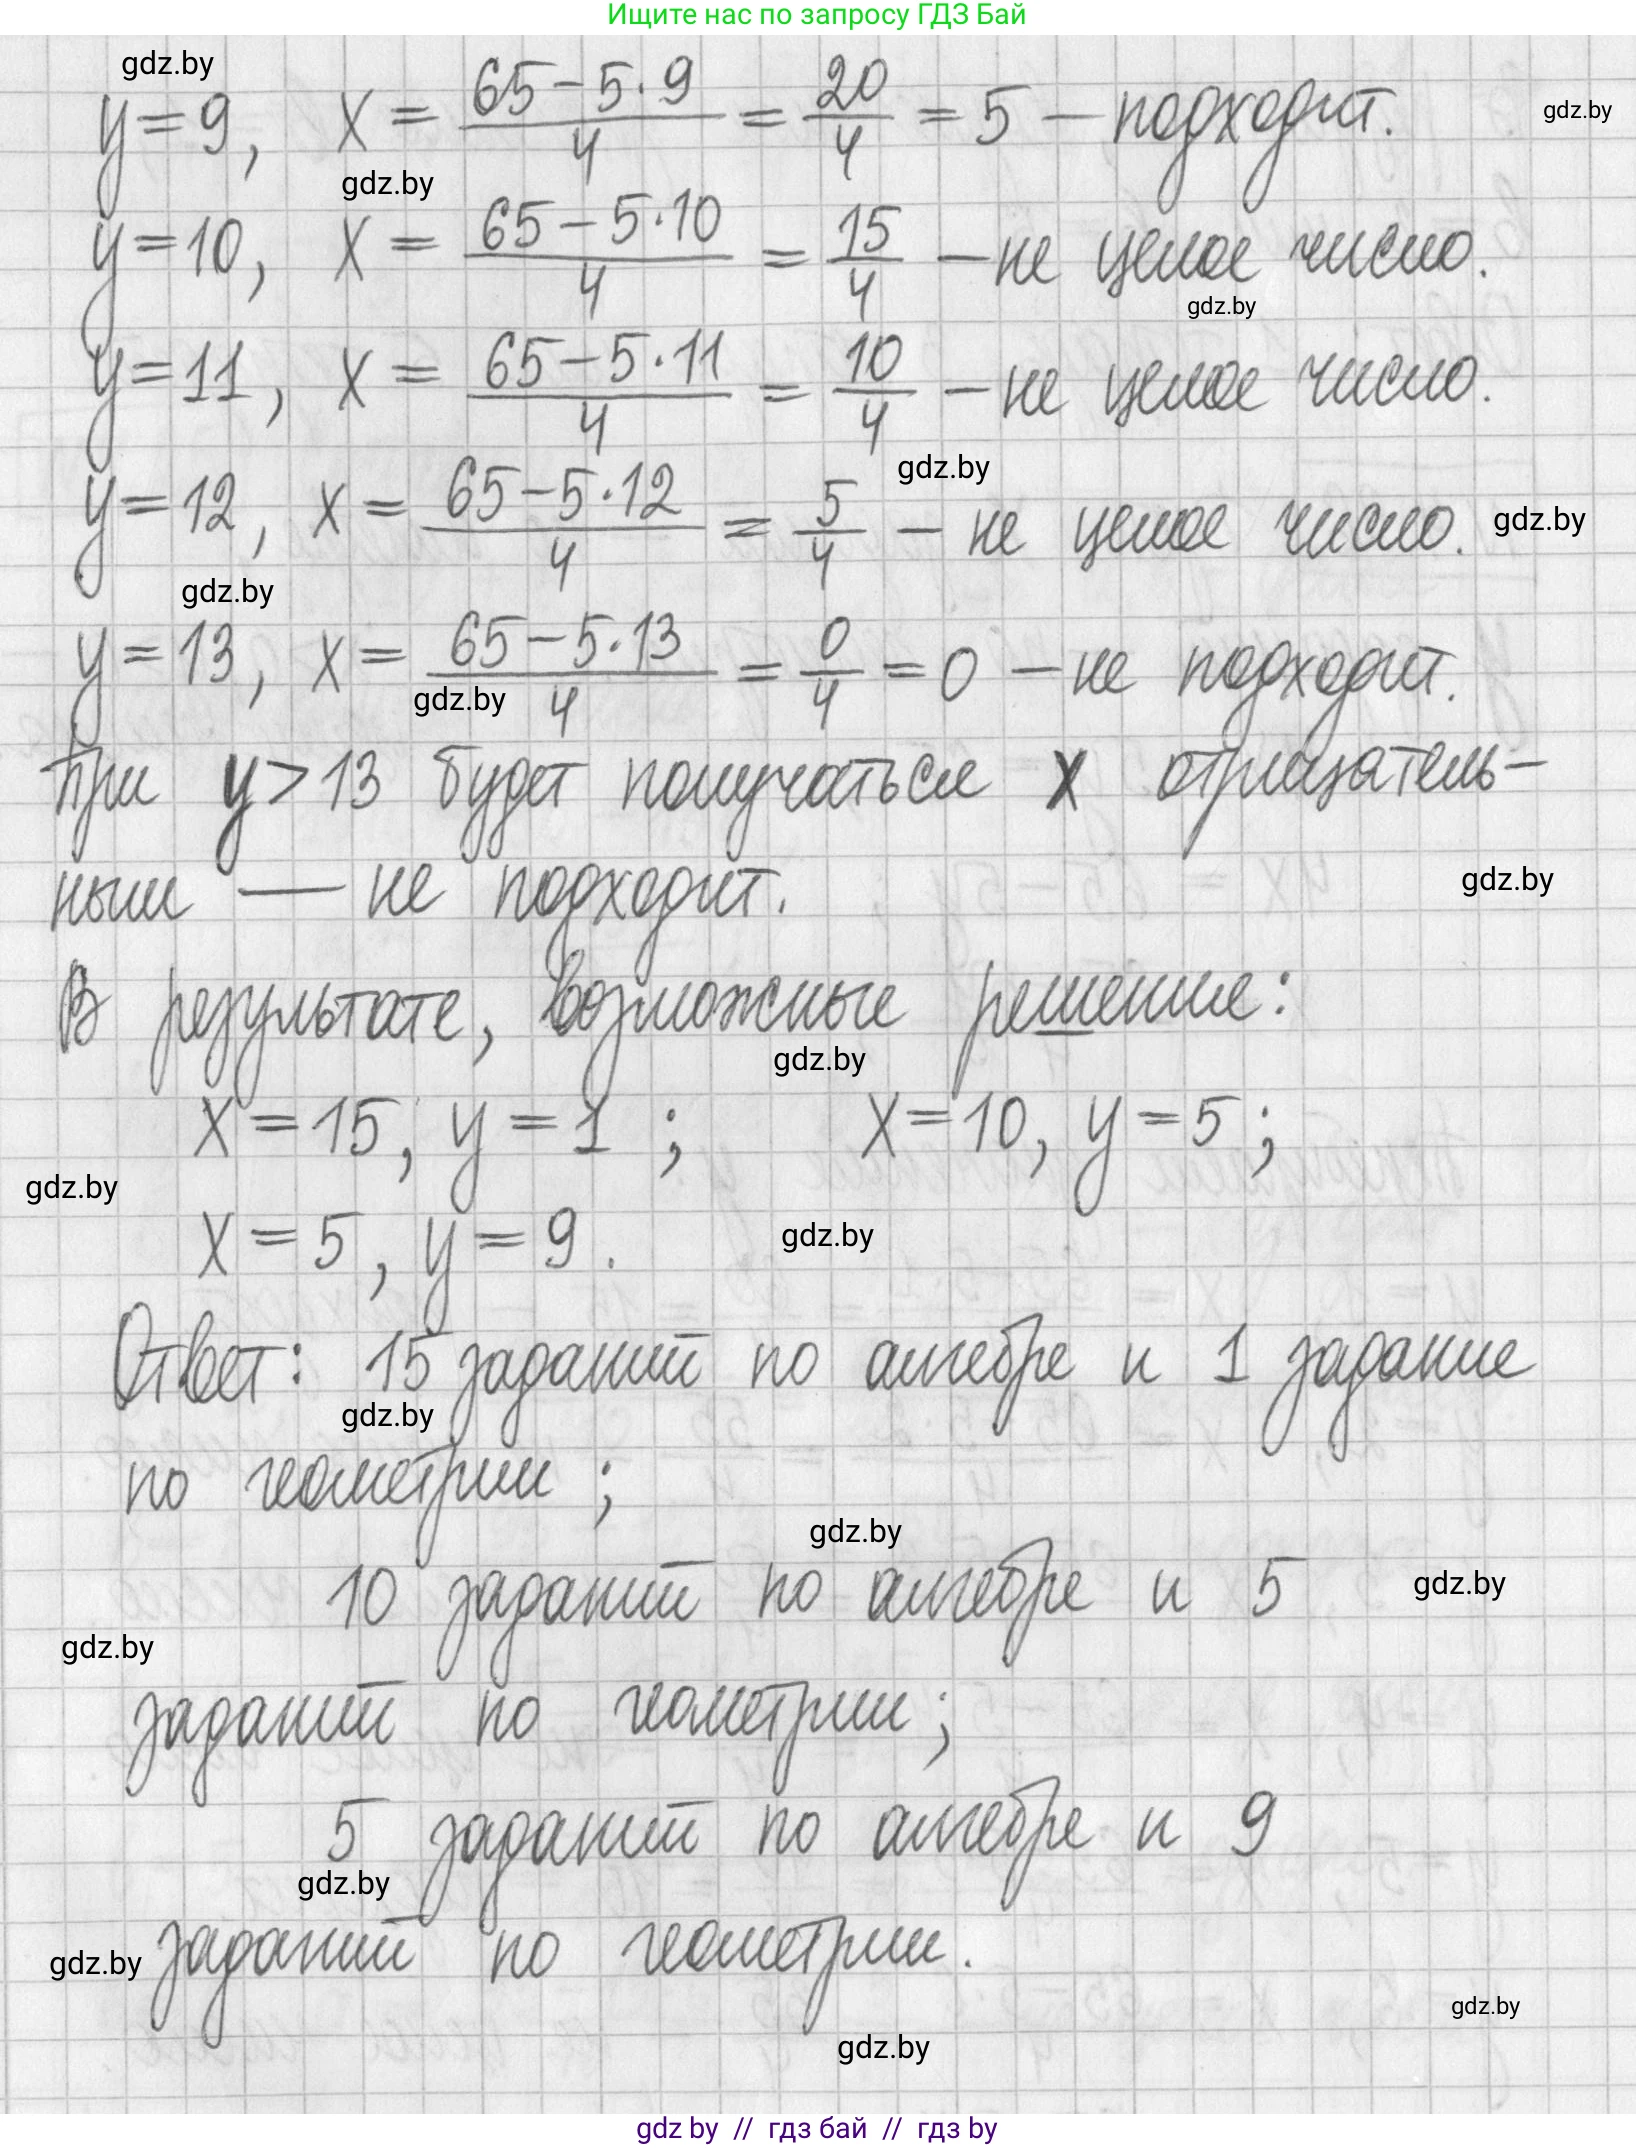 Ищите нас по запросу ГДЗ Бай
gdz.by
y = 9, x = (65 - 5·9)/4 = 20/4 = 5 — подходит.
gdz.by
gdz.by
y = 10, x = (65 - 5·10)/4 = 15/4 — не целое число.
gdz.by
y = 11, x = (65 - 5·11)/4 = 10/4 — не целое число.
gdz.by
y = 12, x = (65 - 5·12)/4 = 5/4 — не целое число.
gdz.by
gdz.by
y = 13, x = (65 - 5·13)/4 = 0/4 = 0 — не подходит.
gdz.by
При y > 13 будет получаться x отрицатель-
ным — не подходит.
gdz.by
В результате, возможные решение:
gdz.by
x = 15, y = 1; x = 10, y = 5;
gdz.by
x = 5, y = 9.
gdz.by
Ответ: 15 заданий по алгебре и 1 задание
gdz.by
по геометрии;
gdz.by
10 заданий по алгебре и 5
gdz.by
gdz.by
заданий по геометрии;
5 заданий по алгебре и 9
gdz.by
gdz.by
заданий по геометрии.
gdz.by
gdz.by
gdz by // гдз бай // гдз by